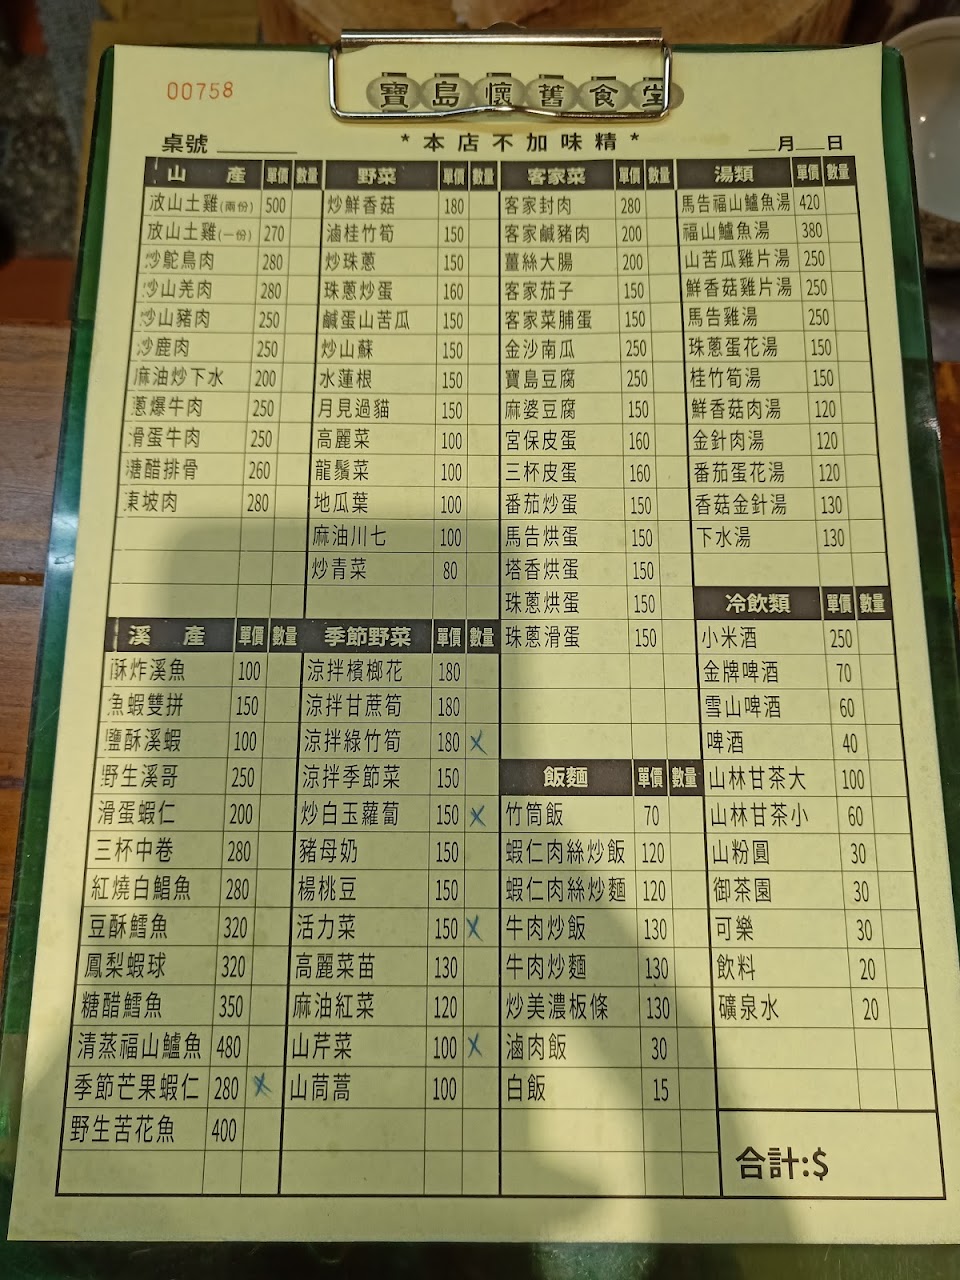 00758
寶島懷舊食堂
桌號
*本店不加味精*
月 日
山產 單價 數量
放山土雞(兩份) 500
放山土雞(一份) 270
炒鴕鳥肉 280
炒山羌肉 280
炒山豬肉 250
炒鹿肉 250
麻油炒下水 200
蔥爆牛肉 250
滑蛋牛肉 250
糖醋排骨 260
東坡肉 280
溪產 單價 數量
酥炸溪魚 100
魚蝦雙拼 150
鹽酥溪蝦 100
野生溪哥 250
滑蛋蝦仁 200
三杯中卷 280
紅燒白鯧魚 280
豆酥鱈魚 320
鳳梨蝦球 320
糖醋鱈魚 350
清蒸福山鱸魚 480
季節芒果蝦仁 280 X
野生苦花魚 400
野菜 單價 數量
炒鮮香菇 180
滷桂竹筍 150
炒珠蔥 150
珠蔥炒蛋 160
鹹蛋山苦瓜 150
炒山蘇 150
水蓮根 150
月見過貓 150
高麗菜 100
龍鬚菜 100
地瓜葉 100
麻油川七 100
炒青菜 80
季節野菜 單價 數量
涼拌檳榔花 180
涼拌甘蔗筍 180
涼拌綠竹筍 180 X
涼拌季節菜 150
炒白玉蘿蔔 150 X
豬母奶 150
楊桃豆 150
活力菜 150 X
高麗菜苗 130
麻油紅菜 120
山芹菜 100 X
山茼蒿 100
客家菜 單價 數量
客家封肉 280
客家鹹豬肉 200
薑絲大腸 200
客家茄子 150
客家菜脯蛋 150
金沙南瓜 250
寶島豆腐 250
麻婆豆腐 150
宮保皮蛋 160
三杯皮蛋 160
番茄炒蛋 150
馬告烘蛋 150
塔香烘蛋 150
珠蔥烘蛋 150
珠蔥滑蛋 150
飯麵 單價 數量
竹筒飯 70
蝦仁肉絲炒飯 120
蝦仁肉絲炒麵 120
牛肉炒飯 130
牛肉炒麵 130
炒美濃板條 130
滷肉飯 30
白飯 15
湯類 單價 數量
馬告福山鱸魚湯 420
福山鱸魚湯 380
山苦瓜雞片湯 250
鮮香菇雞片湯 250
馬告雞湯 250
珠蔥蛋花湯 150
桂竹筍湯 150
鮮香菇肉湯 120
金針肉湯 120
番茄蛋花湯 120
香菇金針湯 130
下水湯 130
冷飲類 單價 數量
小米酒 250
金牌啤酒 70
雪山啤酒 60
啤酒 40
山林甘茶大 100
山林甘茶小 60
山粉圓 30
御茶園 30
可樂 30
飲料 20
礦泉水 20
合計:$